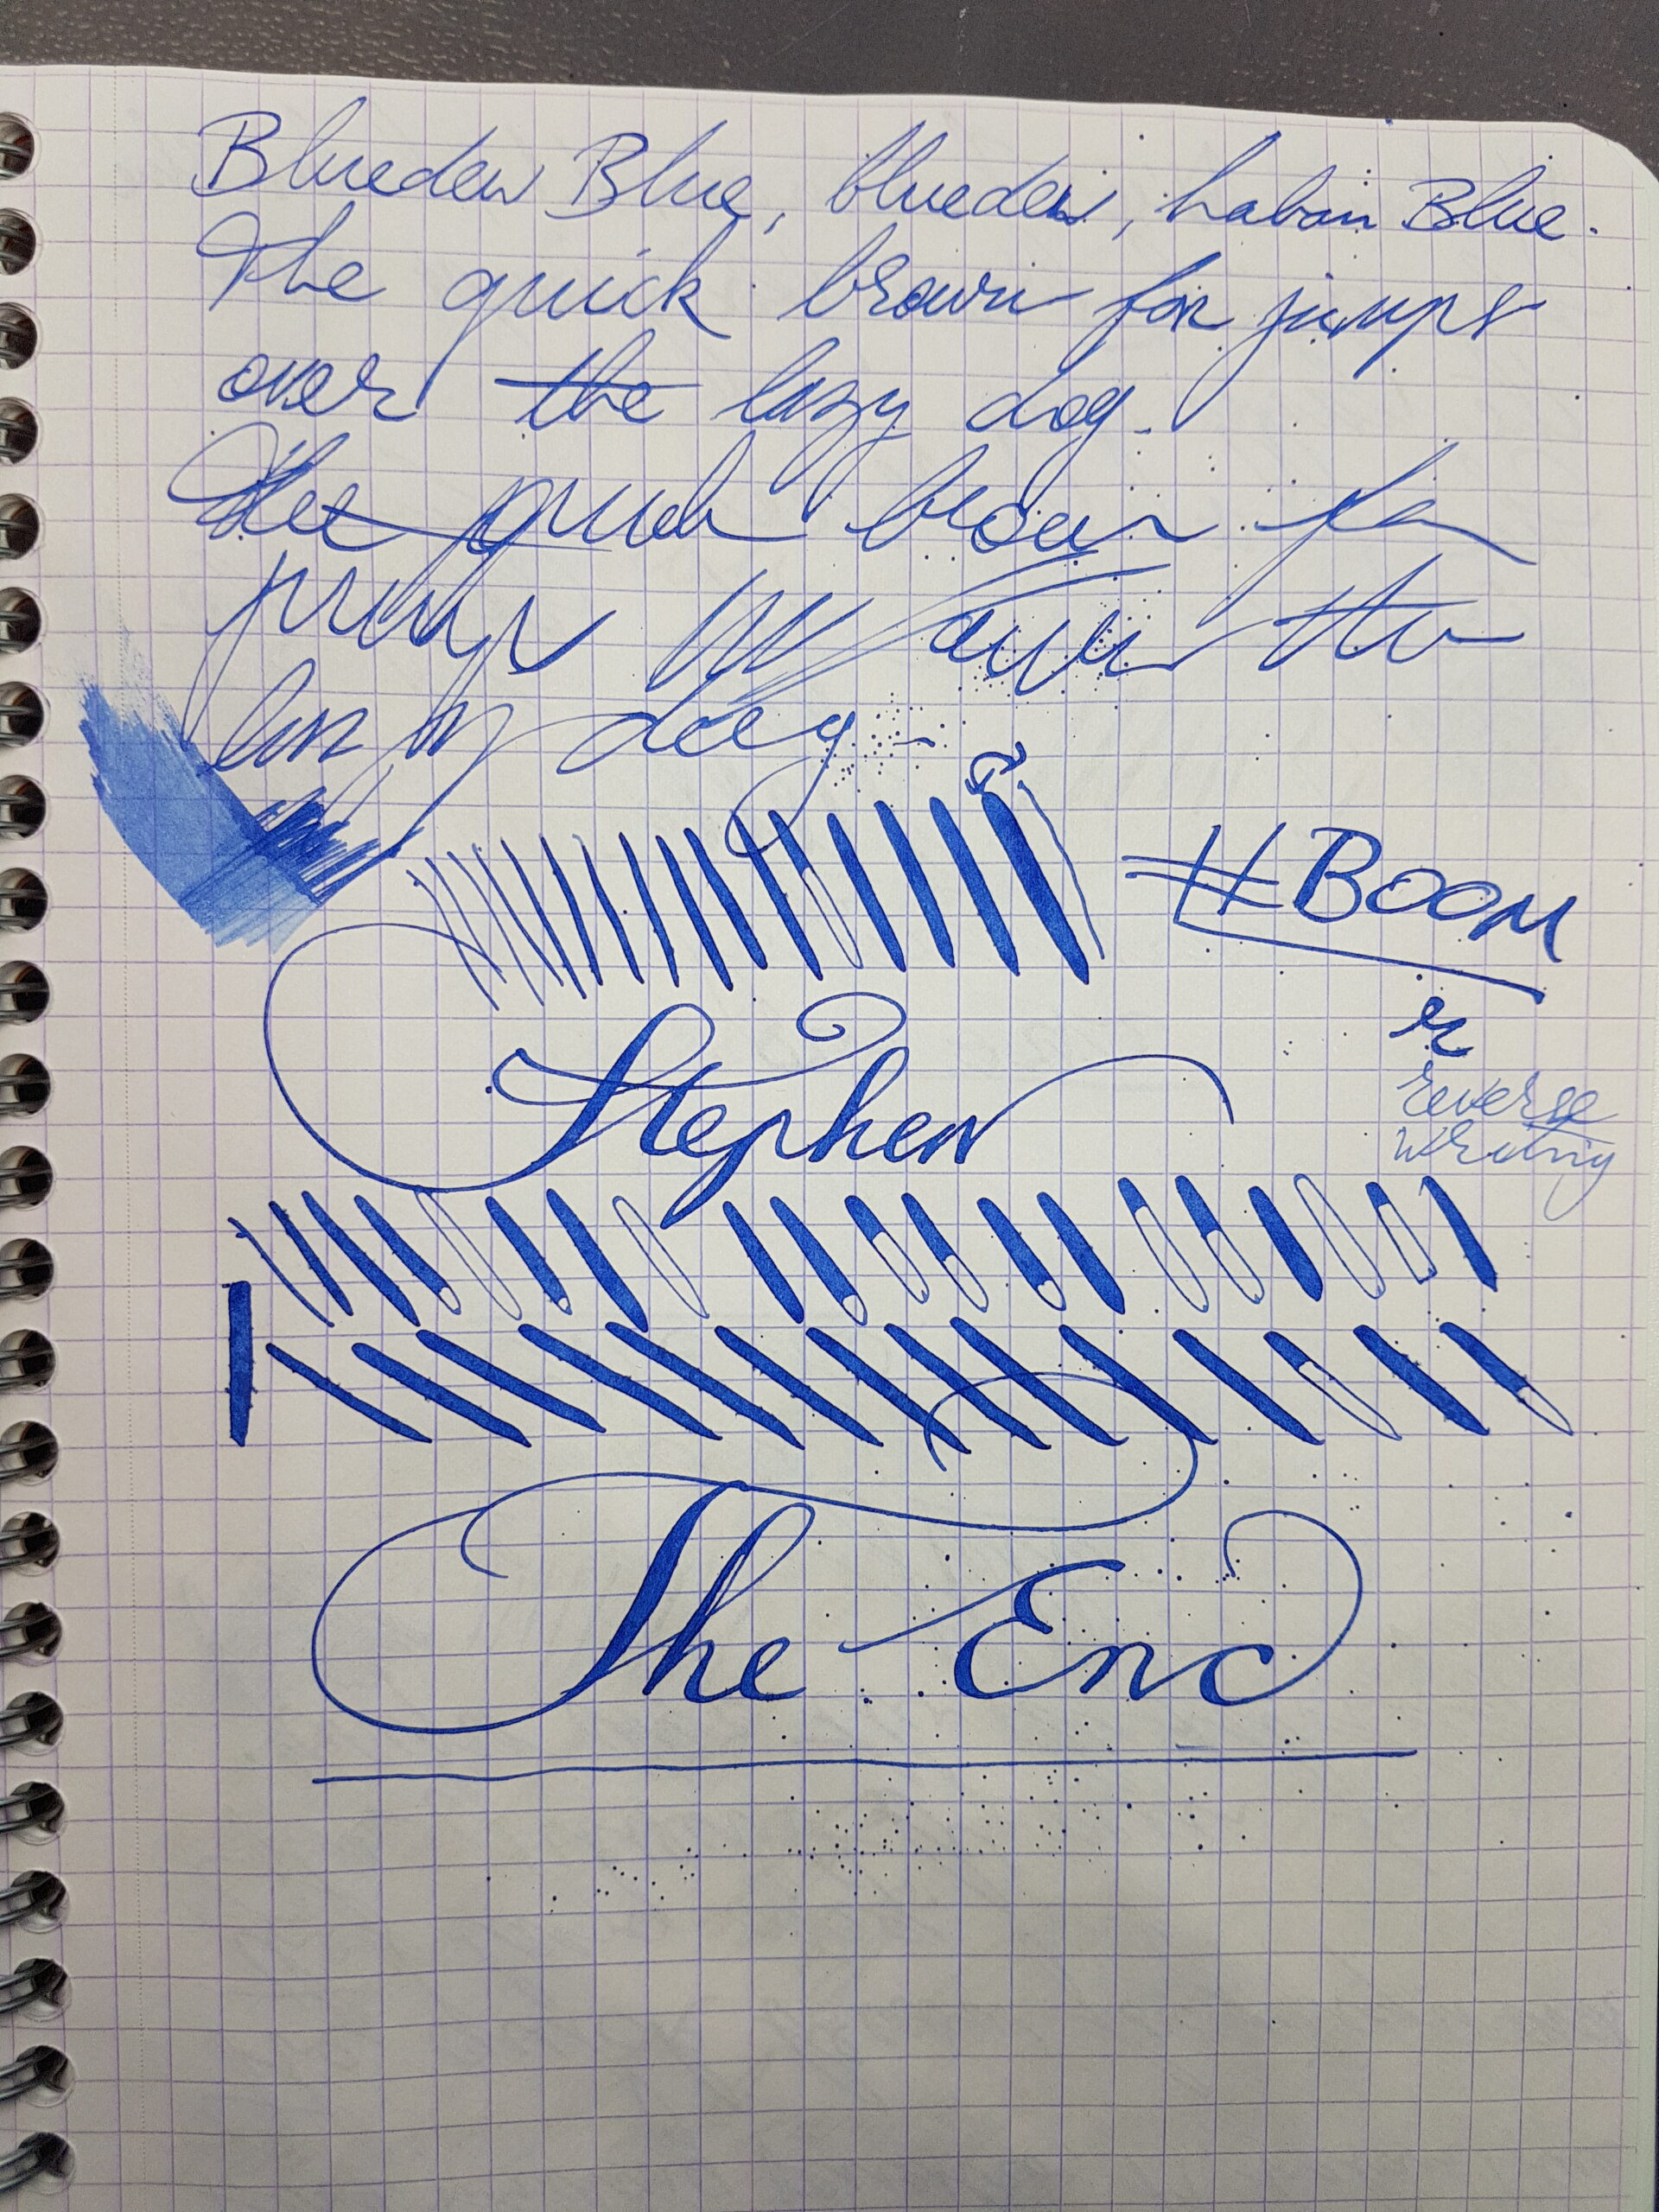 Bluedew Blue, bluedew, haban Blue.
The quick brown fox jumps
over the lazy dog.
The quick brown fox
jumps over the
lazy dog
#BOOM
Stephen
reverse
writing
The End